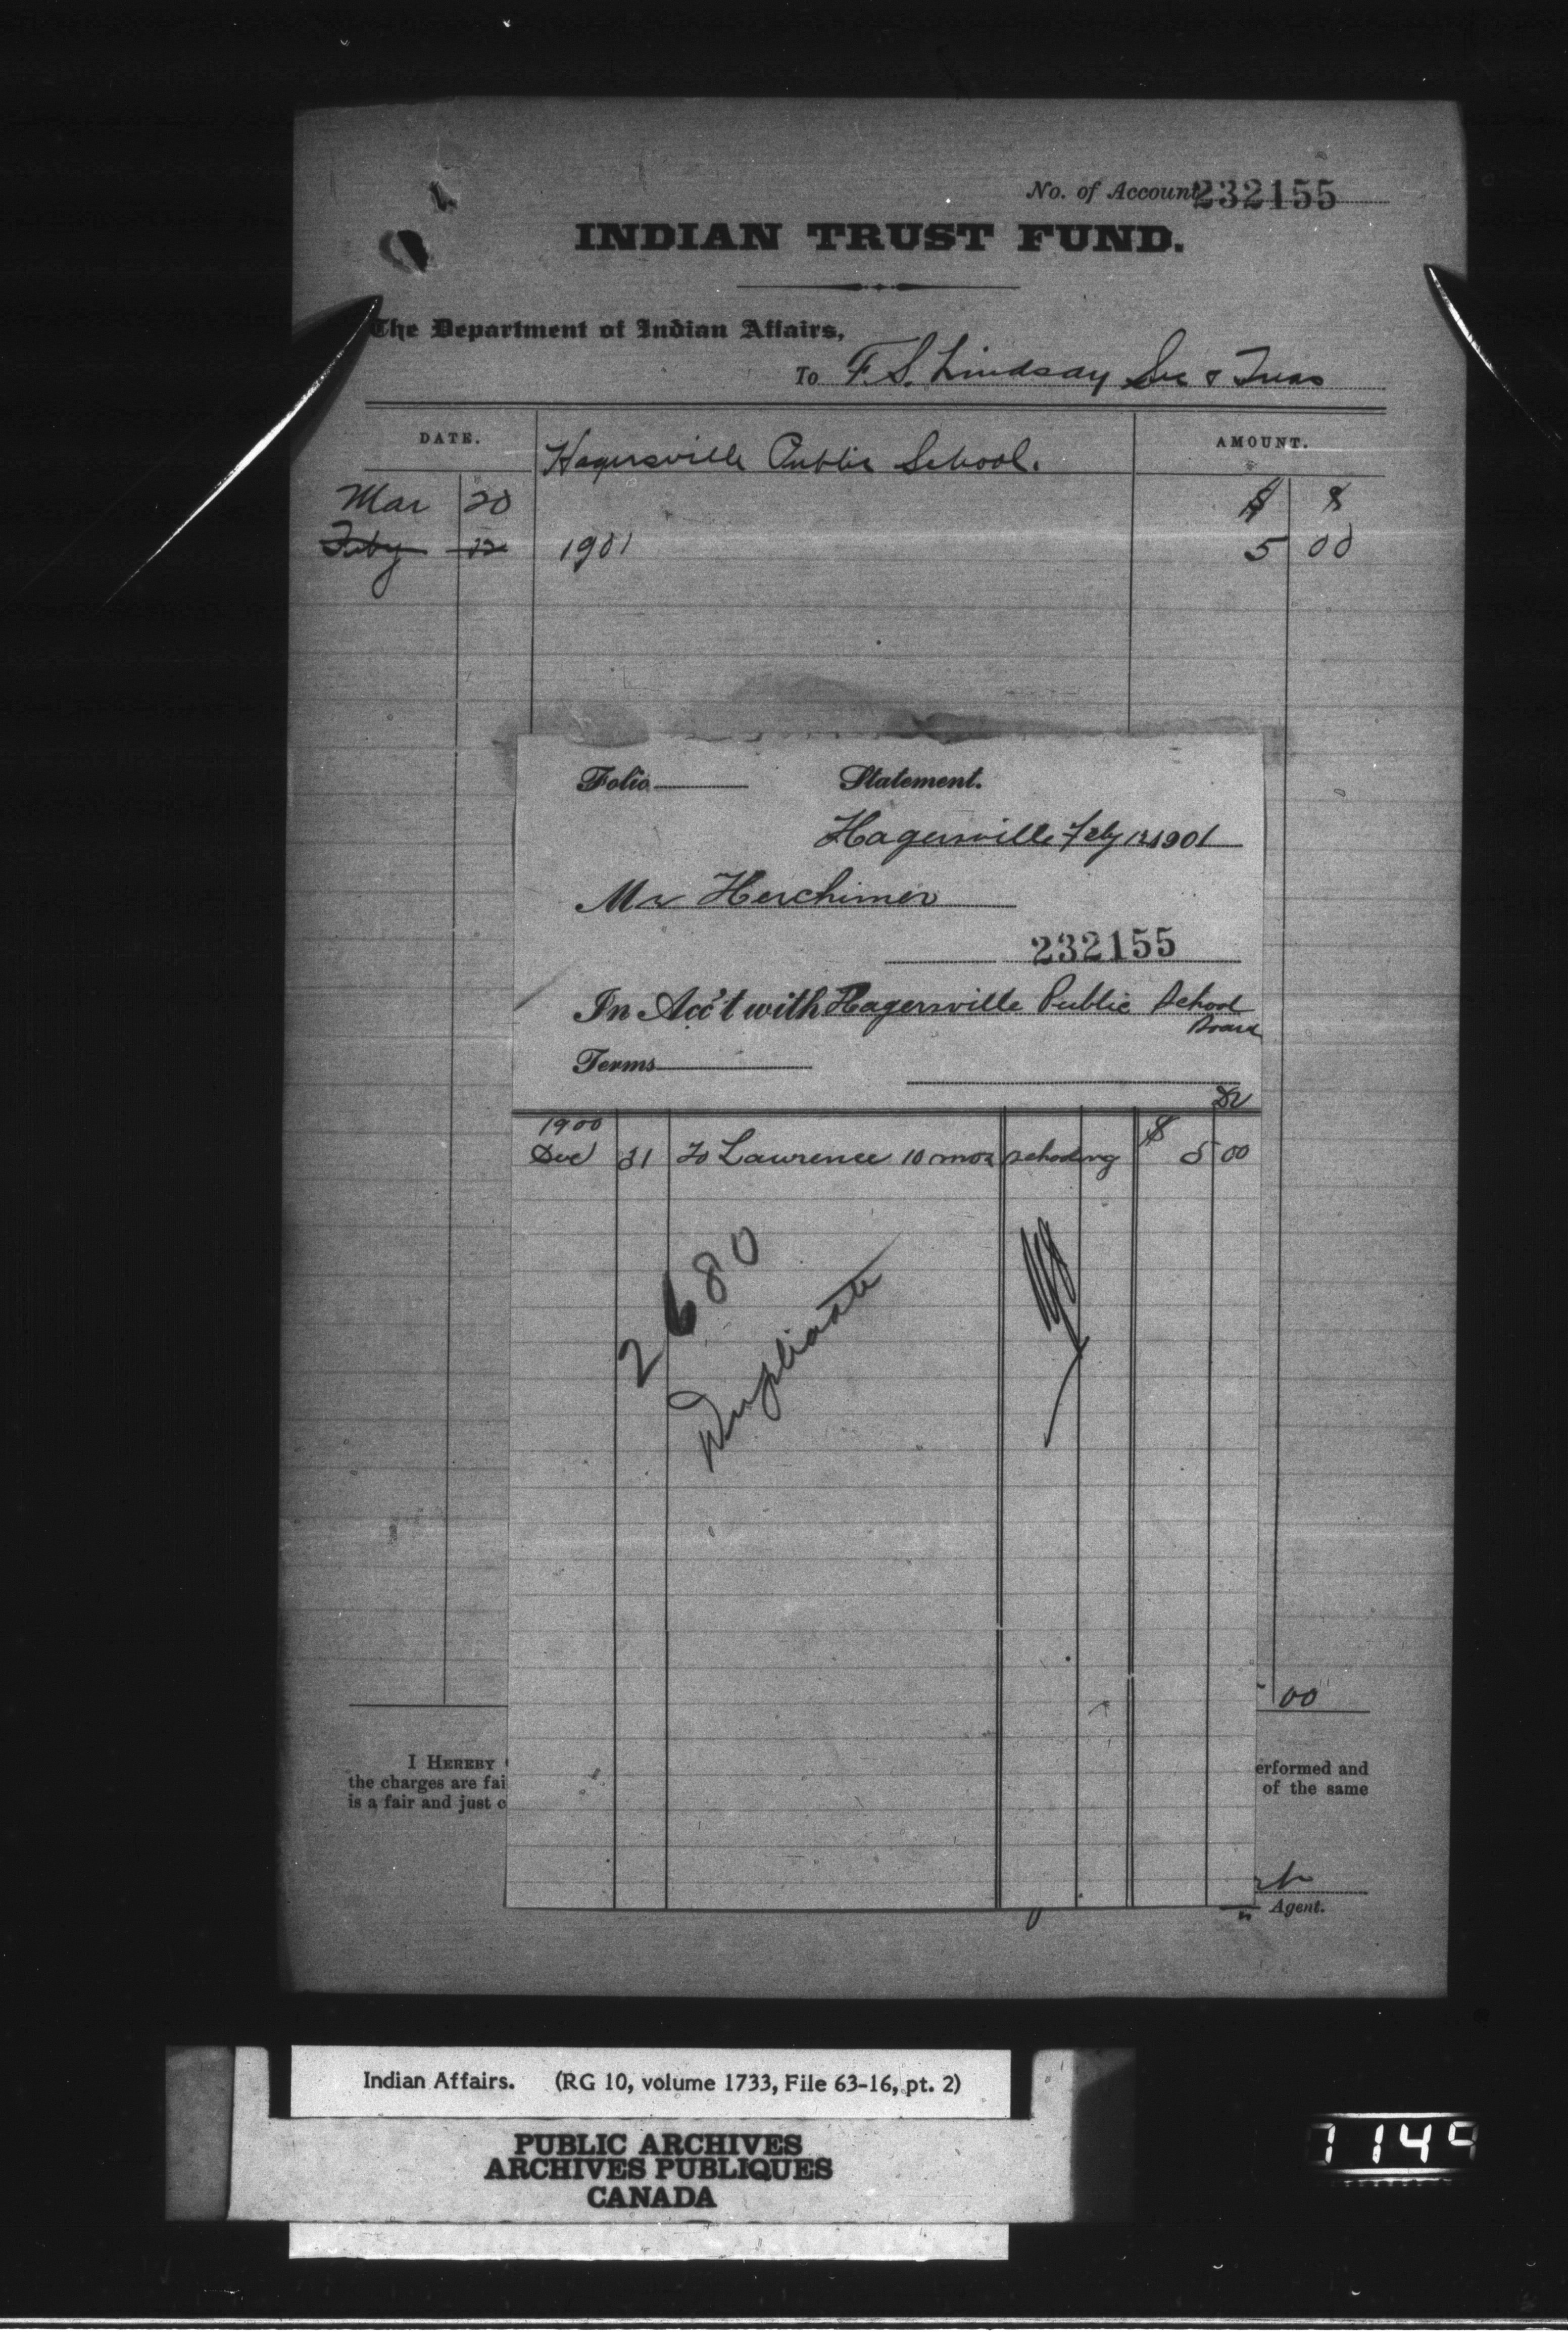 No. of Account 232155
INDIAN TRUST FUND.
The Department of Indian Affairs,
To F. S. Lindsay Sec & Treas
DATE. AMOUNT.
Hagersville Public School.
Mar 20 $
Feby 22 1901 5 00
Folio Statement.
Hagersville Feby 12 1901
Mr Herchimer
232155
In Acc't with Hagersville Public School
Board
Terms
Dr
1900
Dec 31 To Lawrence 10 mos schooling $ 5 00
2680
Duplicate
00
I HEREBY
the charges are fai
is a fair and just c
erformed and
of the same
Agent.
Indian Affairs. (RG 10, volume 1733, File 63-16, pt. 2)
PUBLIC ARCHIVES
ARCHIVES PUBLIQUES
CANADA
1149